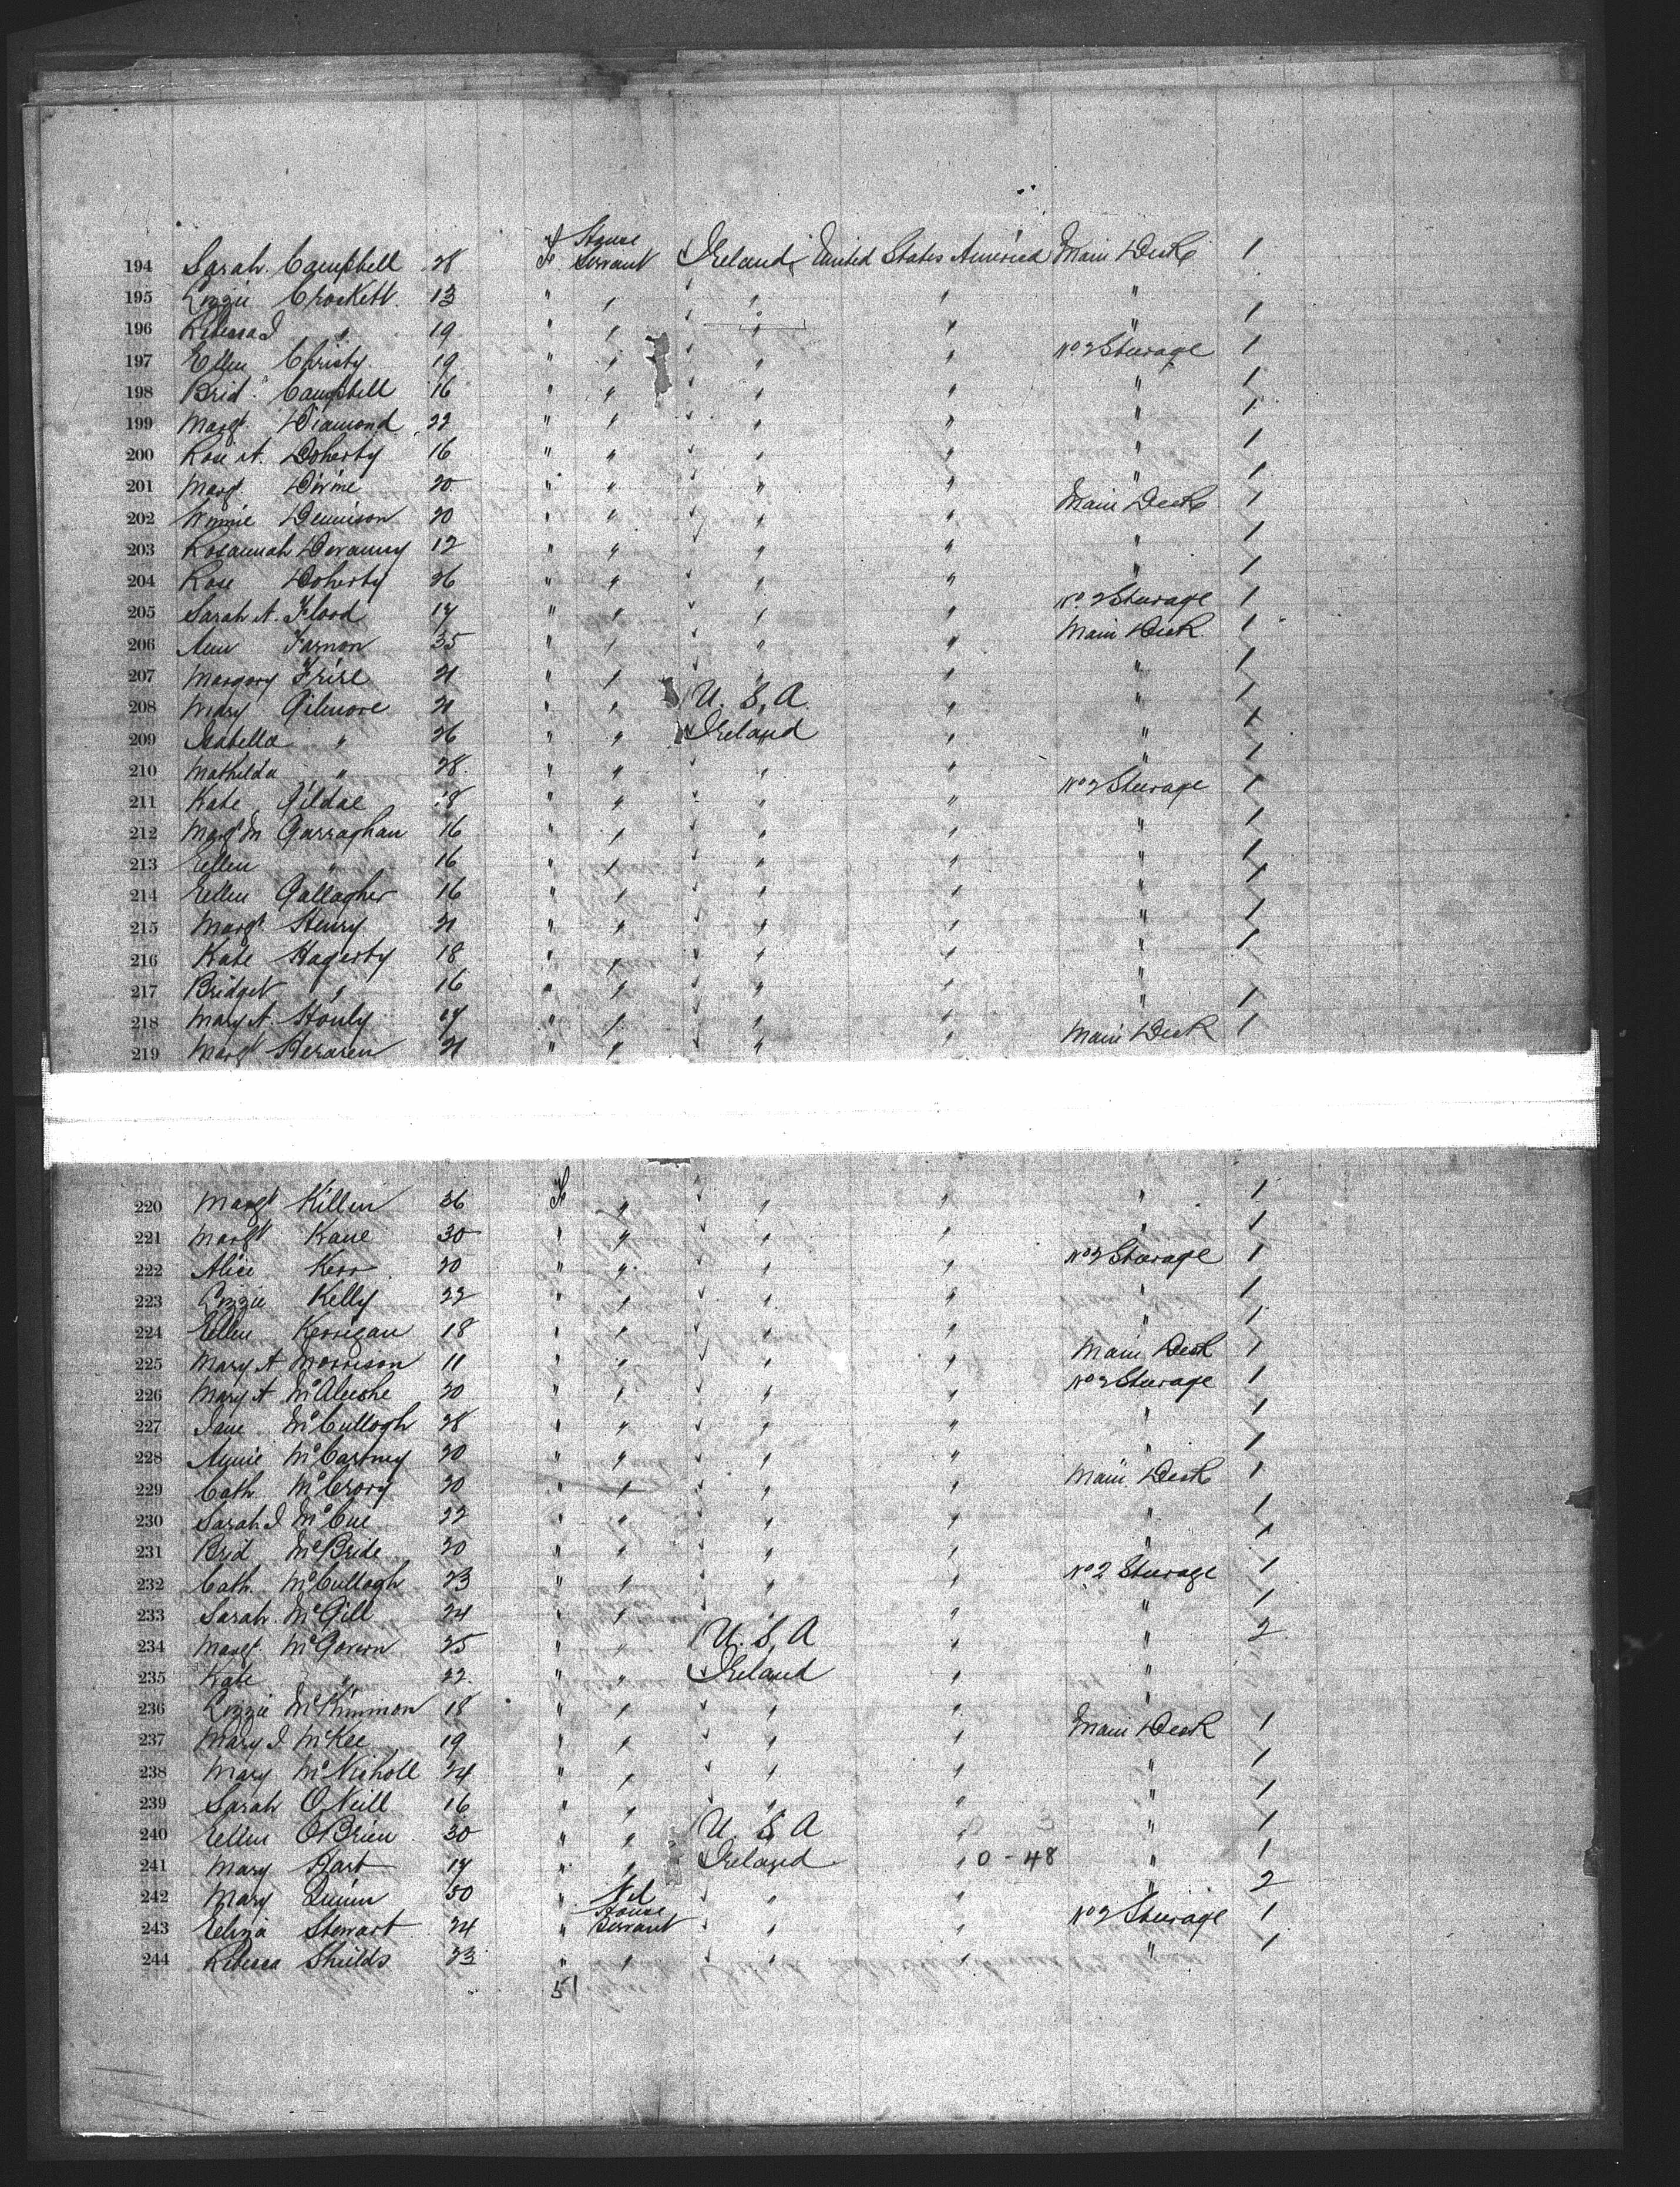 194 Sarah Campbell 28 F House Servant Ireland United States America Main Deck 1
195 Lizzie Crockett 13 " " " " "
196 Rebecca J " 19 " " " " " 1
197 Ellen Christy 19 " " " " No 2 Steerage 1
198 Brid. Campbell 16 " " " " " 1
199 Margt. Diamond 22 " " " " " 1
200 Rose A. Doherty 16 " " " " " 1
201 Margt. Divine 20 " " " " " 1
202 Winnie Dennison 20 " " " " Main Deck 1
203 Rosannah Devanny 12 " " " " " 1
204 Rose Doherty 26 " " " " " 1
205 Sarah A. Flood 17 " " " " No. 2 Steerage 1
206 Ann Farnon 35 " " " " Main Deck 1
207 Margory Friel 21 " " " " " 1
208 Mary Gilmore 21 " " U. S. A " " 1
209 Isabella " 26 " " Ireland " " 1
210 Mathilda " 28 " " " " " 1
211 Kate Gildae 18 " " " " No 2 Steerage 1
212 Margt M Garraghan 16 " " " " " 1
213 Ellen " 16 " " " " " 1
214 Ellen Gallagher 16 " " " " " 1
215 Margt. Henry 21 " " " " " 1
216 Kate Hagerty 18 " " " " " 1
217 Bridget " 16 " " " " "
218 Mary A. Houly " " " " " 1
219 Margt 21 " " " " Main Deck 1
220 Margt Killen 36 F " " " " 1
221 Margt Kane 30 " " " " " 1
222 Alice Kerr 20 " " " " No 2 Steerage 1
223 Lizzie Kelly 22 " " " " " 1
224 Ellen Kerrigan 18 " " " " " 1
225 Mary A Morrison 11 " " " " Main Deck 1
226 Mary A McAleeshe 20 " " " " No 2 Steerage 1
227 Jane McCullogh 28 " " " " " 1
228 Annie McCartney 20 " " " " " 1
229 Cath. McCrory 20 " " " " Main Deck 1
230 Sarah J McCue 22 " " " " " 1
231 Brid McBride 20 " " " " " 1
232 Cath. McCullogh 23 " " " " No 2 Steerage 1
233 Sarah McGill 24 " " " " " 1
234 Margt. McGovern 25 " " U. S. A " " 2
235 Kate " 22 " " Ireland " "
236 Lizzie McKinnion 18 " " " " "
237 Mary J McKee 19 " " " " Main Deck 1
238 Mary McNicholl 24 " " " " " 1
239 Sarah O'Neill 16 " " " " " 1
240 Ellen O'Brien 30 " " U. S. A " 1
241 Mary Hart 17 " " Ireland " 0-48 " 1
242 Mary Quinn 50 " Nil " " " 2
243 Eliza Stewart 24 " House Servant " " No 2 Steerage 1
244 Rebecca Shields 23 " " " " " 1
51